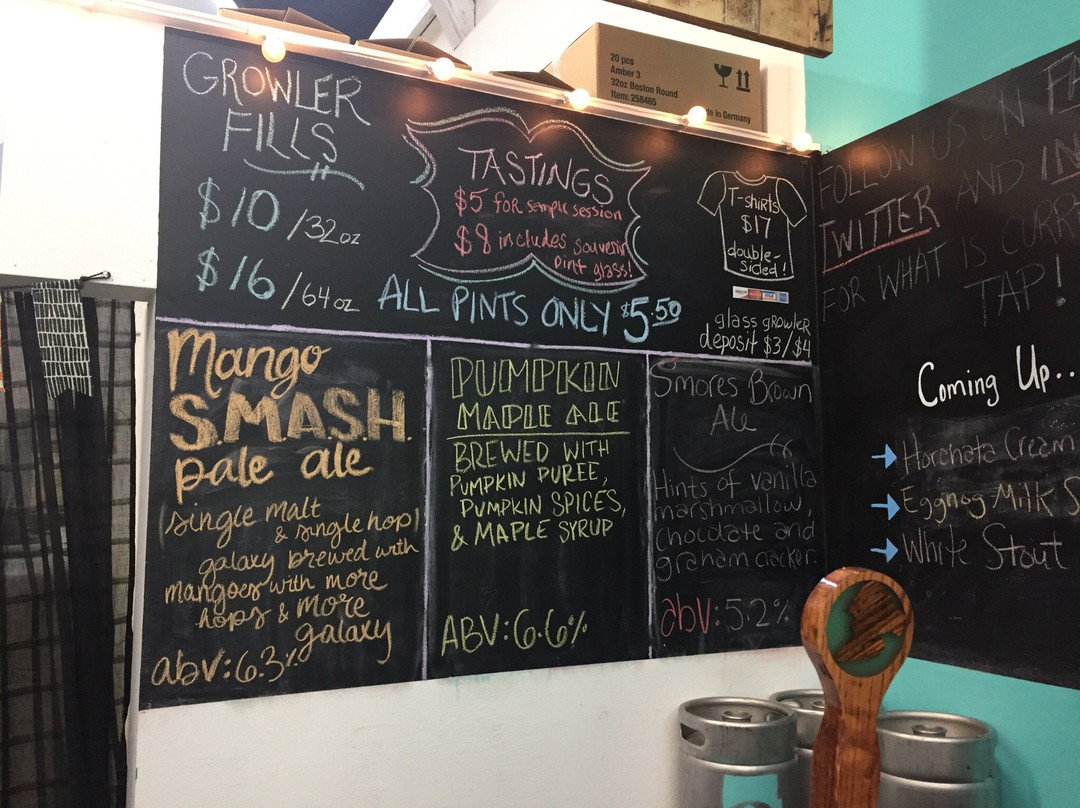 20 pcs
Amber 3
32oz Boston Round
Item: 258465
Made in Germany
GROWLER
FILLS
$10/32oz
$16/64oz
TASTINGS
$5 for sample session
$8 includes souvenir
pint glass!
ALL PINTS ONLY $5.50
T-shirts
$17
double-
sided!
glass growler
deposit $3/$4
Mango
S.M.A.S.H.
pale ale
(single malt
& single hop)
galaxy brewed with
mangoes with more
hops & more
galaxy
abv: 6.3%
PUMPKIN
MAPLE ALE
BREWED WITH
PUMPKIN PUREE,
PUMPKIN SPICES,
& MAPLE SYRUP
ABV: 6.6%
S'mores Brown
Ale
Hints of vanilla
marshmallow,
chocolate and
graham cracker.
abv: 5.2%
FOLLOW US ON FA
TWITTER AND IN
FOR WHAT IS CURR
TAP!
Coming Up...
Horchata Cream
Eggnog Milk S
White Stout